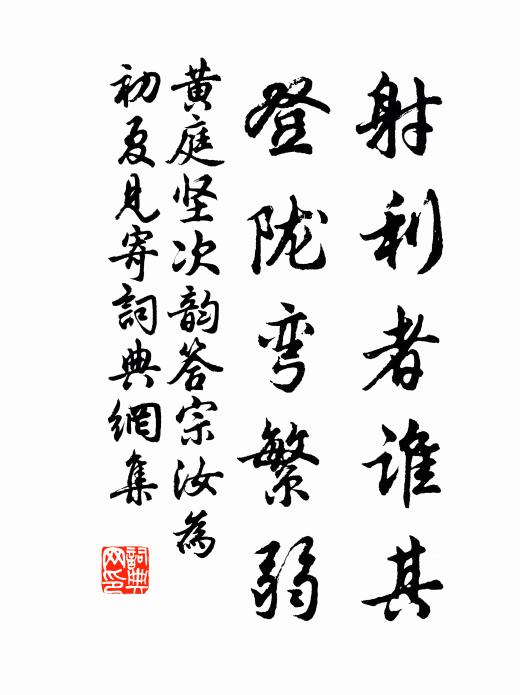 射利者谁其
登陇弯繁弱
黄庭坚次韵答宗汝為
初夏見寄詞典網集
詞典网印